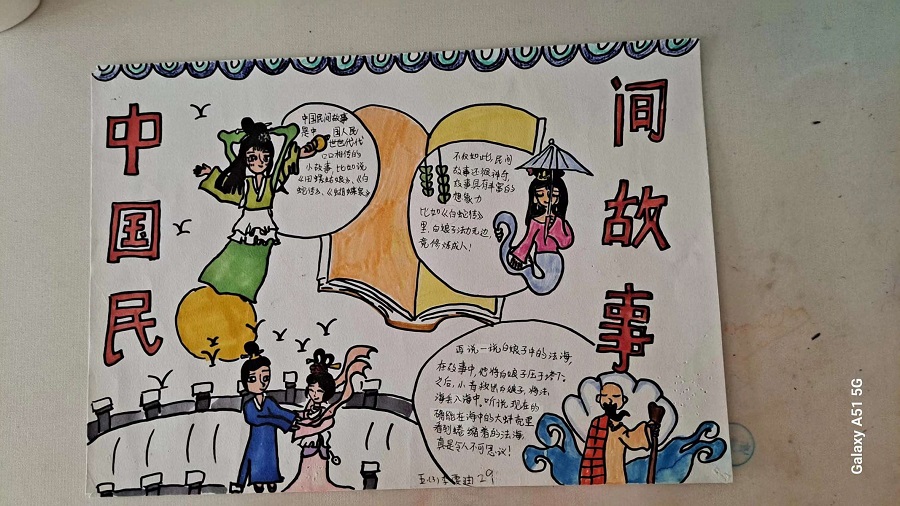 中国民
间故事
中国民间故事
是中 国人民
世世代代
口口相传的
小故事,比如说
《田螺姑娘》、《白
蛇传》、《
不仅如此,民间
故事还很神奇
故事具有丰富的
想象力
比如《白蛇传》
里,白娘子法力无边,
竟修炼成人!
再说一说白娘子中的法海,
在故事中,他将白娘子压于塔下,
之后,小青救出白娘子,将法
海丢入海中,听说现在的
在海中的大蚌壳里
看到蜷缩着的法海,
真是令人不可思议!
29
Galaxy A51 5G